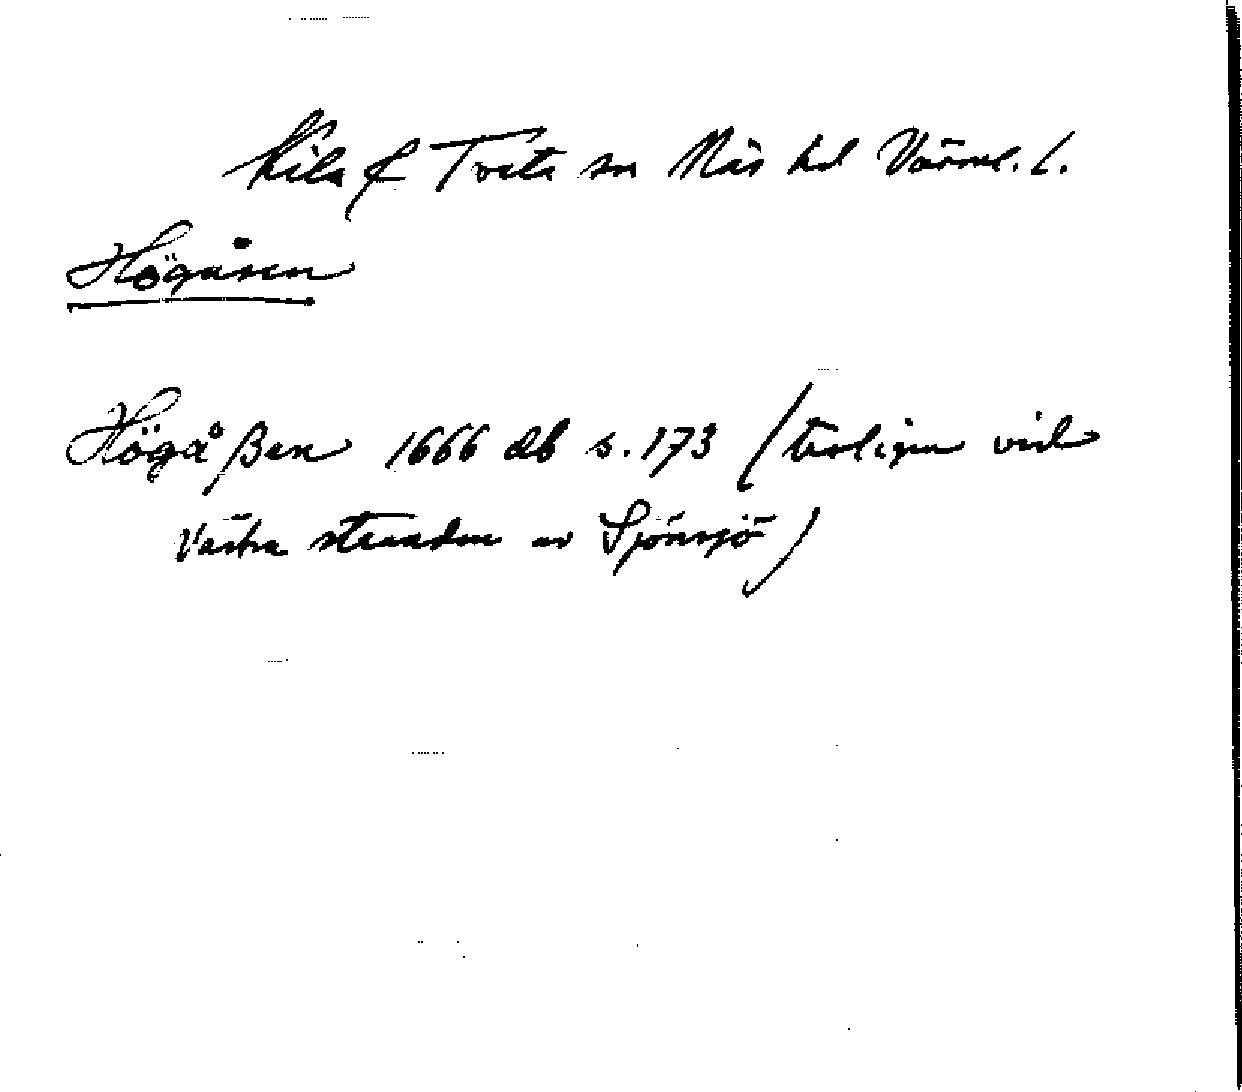 Kila f Tveta sn Näs hd Värml. l.
Högåsen
Högåßen 1666 db s. 173 (troligen vid
Västra stranden av Sjönsjö)